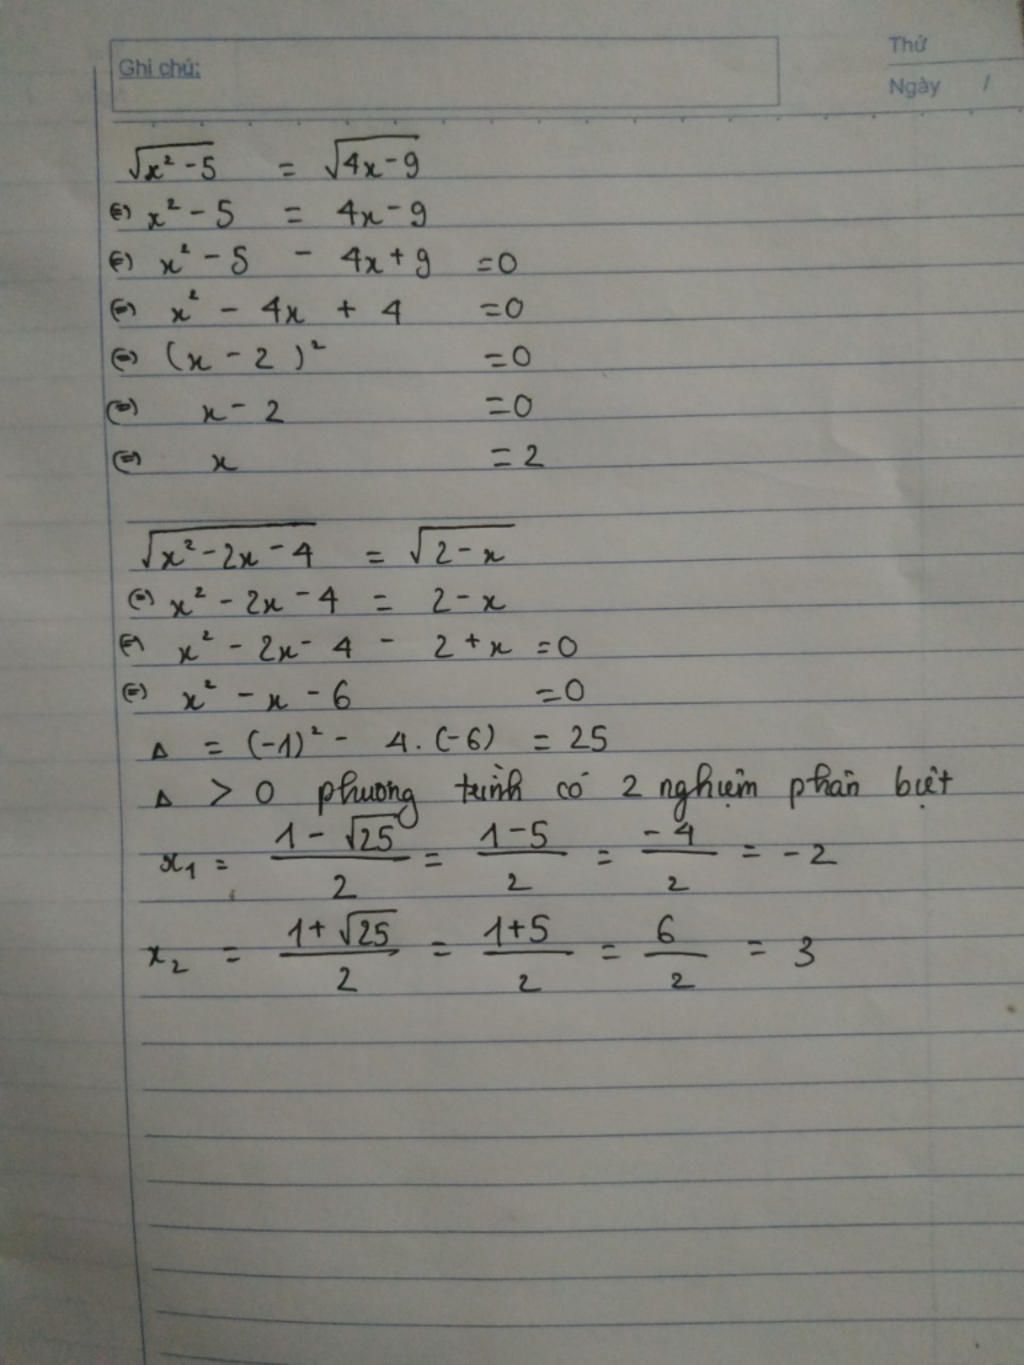 Ghi chú:
Thứ
Ngày /
√(x² - 5) = √(4x - 9)
(=) x² - 5 = 4x - 9
(=) x² - 5 - 4x + 9 = 0
(=) x² - 4x + 4 = 0
(=) (x - 2)² = 0
(=) x - 2 = 0
(=) x = 2
√(x² - 2x - 4) = √(2 - x)
(=) x² - 2x - 4 = 2 - x
(=) x² - 2x - 4 - 2 + x = 0
(=) x² - x - 6 = 0
Δ = (-1)² - 4.(-6) = 25
Δ > 0 phương trình có 2 nghiệm phân biệt
x₁ = (1 - √25)/2 = (1 - 5)/2 = -4/2 = -2
x₂ = (1 + √25)/2 = (1 + 5)/2 = 6/2 = 3